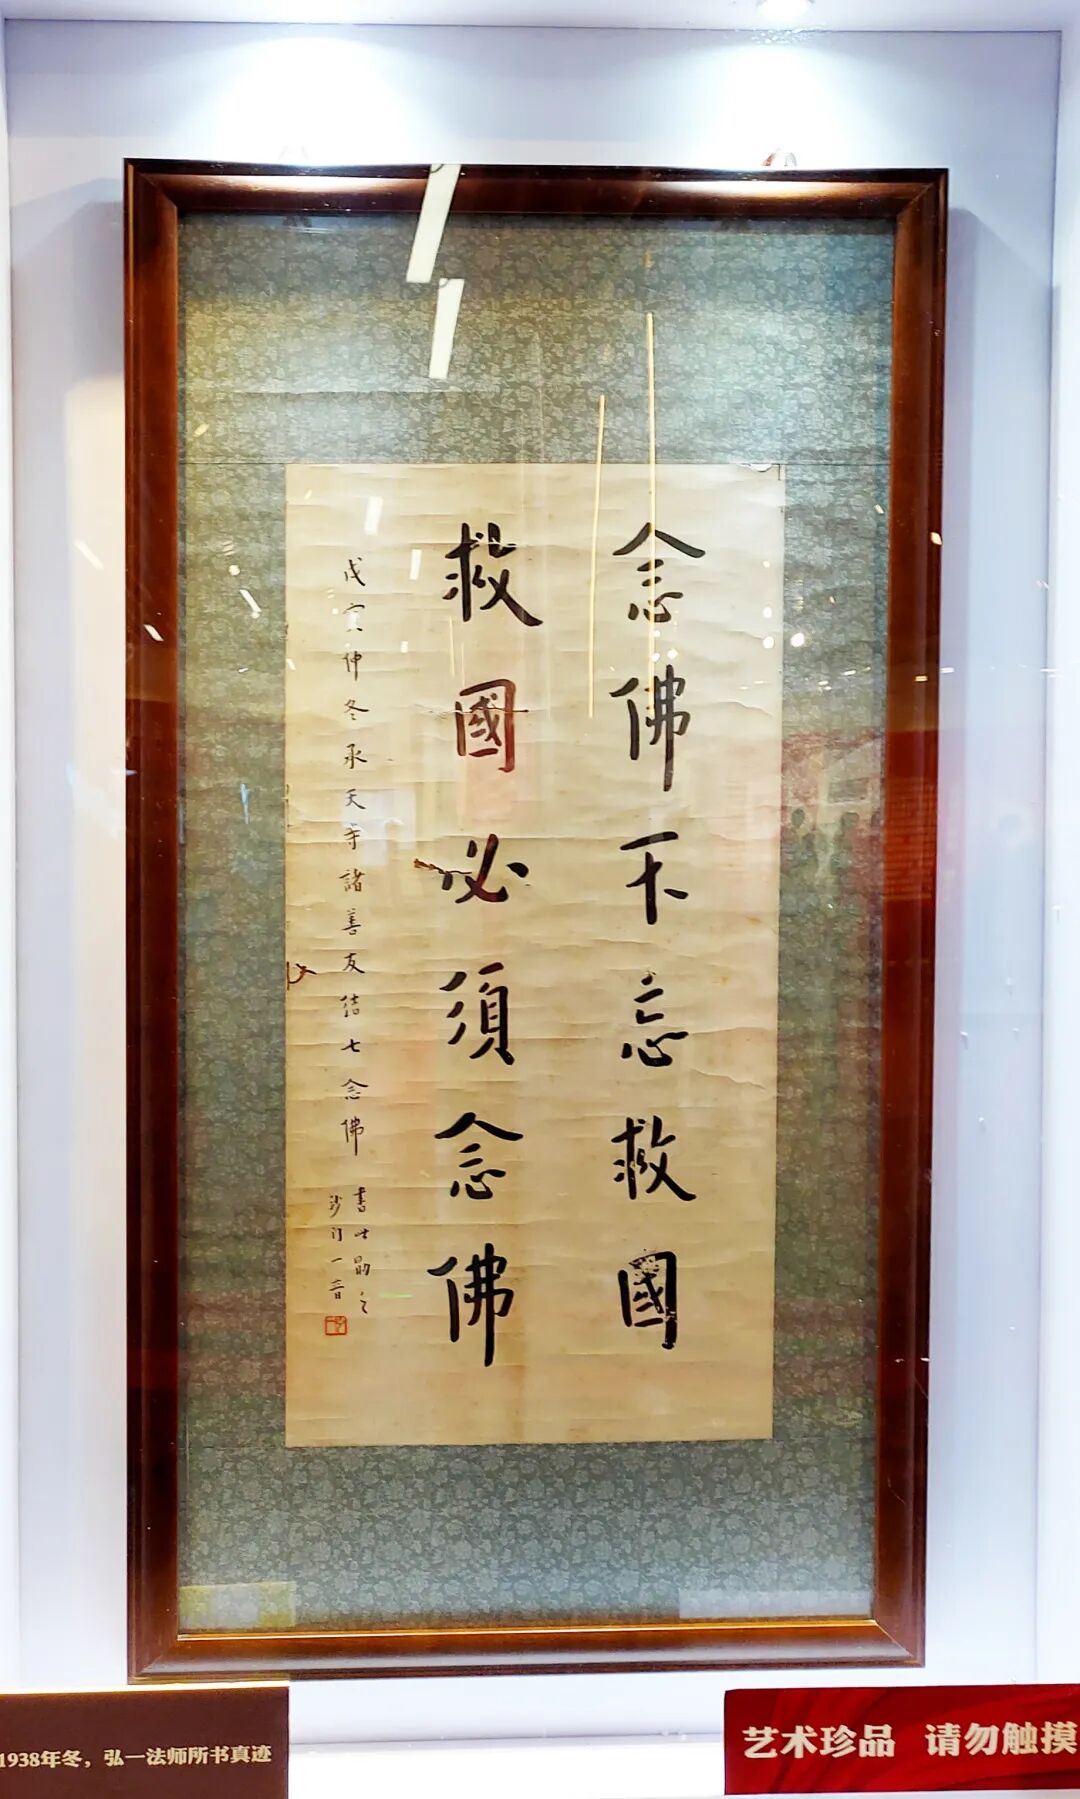 念佛不忘救國
救國必須念佛
戊寅仲冬承天寺諸善友結七念佛
書此勗之
沙门一音
1938年冬，弘一法师所书真迹
艺术珍品 请勿触摸